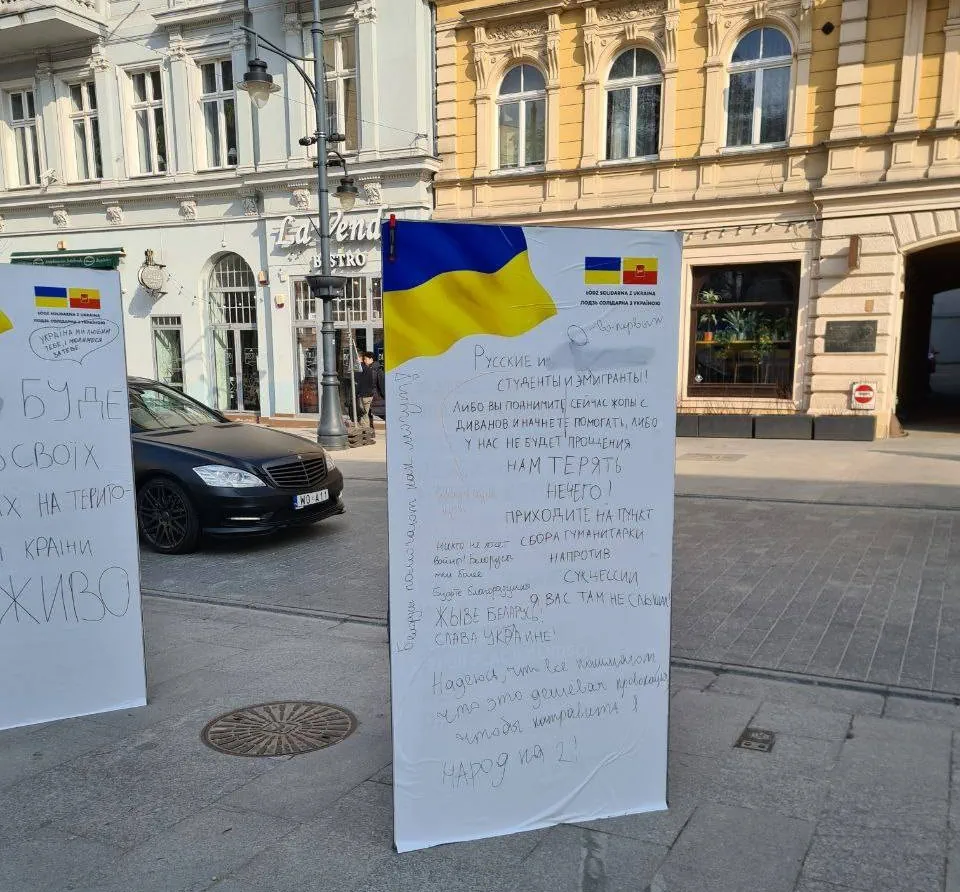 La Vend
BISTRO
ŁÓDŹ SOLIDARNA Z UKRAINĄ
ЛОДЗЬ СОЛІДАРНА З УКРАЇНОЮ
УКРАЇНА МИ ЛЮБИМ
ТЕБЕ, І МОЛИМОСЯ
ЗА ТЕБЕ
БУДЕ
СВОЇХ
Х НА ТЕРИТО-
КРАЇНИ
ЖИВО
W0 A11
ŁÓDŹ SOLIDARNA Z UKRAINĄ
ЛОДЗЬ СОЛІДАРНА З УКРАЇНОЮ
во-первых
РУССКИЕ И
СТУДЕНТЫ И ЭМИГРАНТЫ!
ЛИБО ВЫ ПОДНИМИТЕ СЕЙЧАС ЖОПЫ С
ДИВАНОВ И НАЧНЕТЕ ПОМОГАТЬ, ЛИБО
У НАС НЕ БУДЕТ ПРОЩЕНИЯ
НАМ ТЕРЯТЬ
НЕЧЕГО!
ПРИХОДИТЕ НА ПУНКТ
СБОРА ГУМАНИТАРКИ
НАПРОТИВ
СУКЦЕССИИ
Я ВАС ТАМ НЕ СЛЫШАЛ
никто не хочет
войны! Белорусы
тем более
Будьте благоразумны
ЖЫВЕ БЕЛАРУСЬ!
СЛАВА УКРАИНЕ!
Белрусы помогают как могут
Надеюсь, что все понимают
что это дешевая провокация
чтобы натравить
НАРОД НА 2!